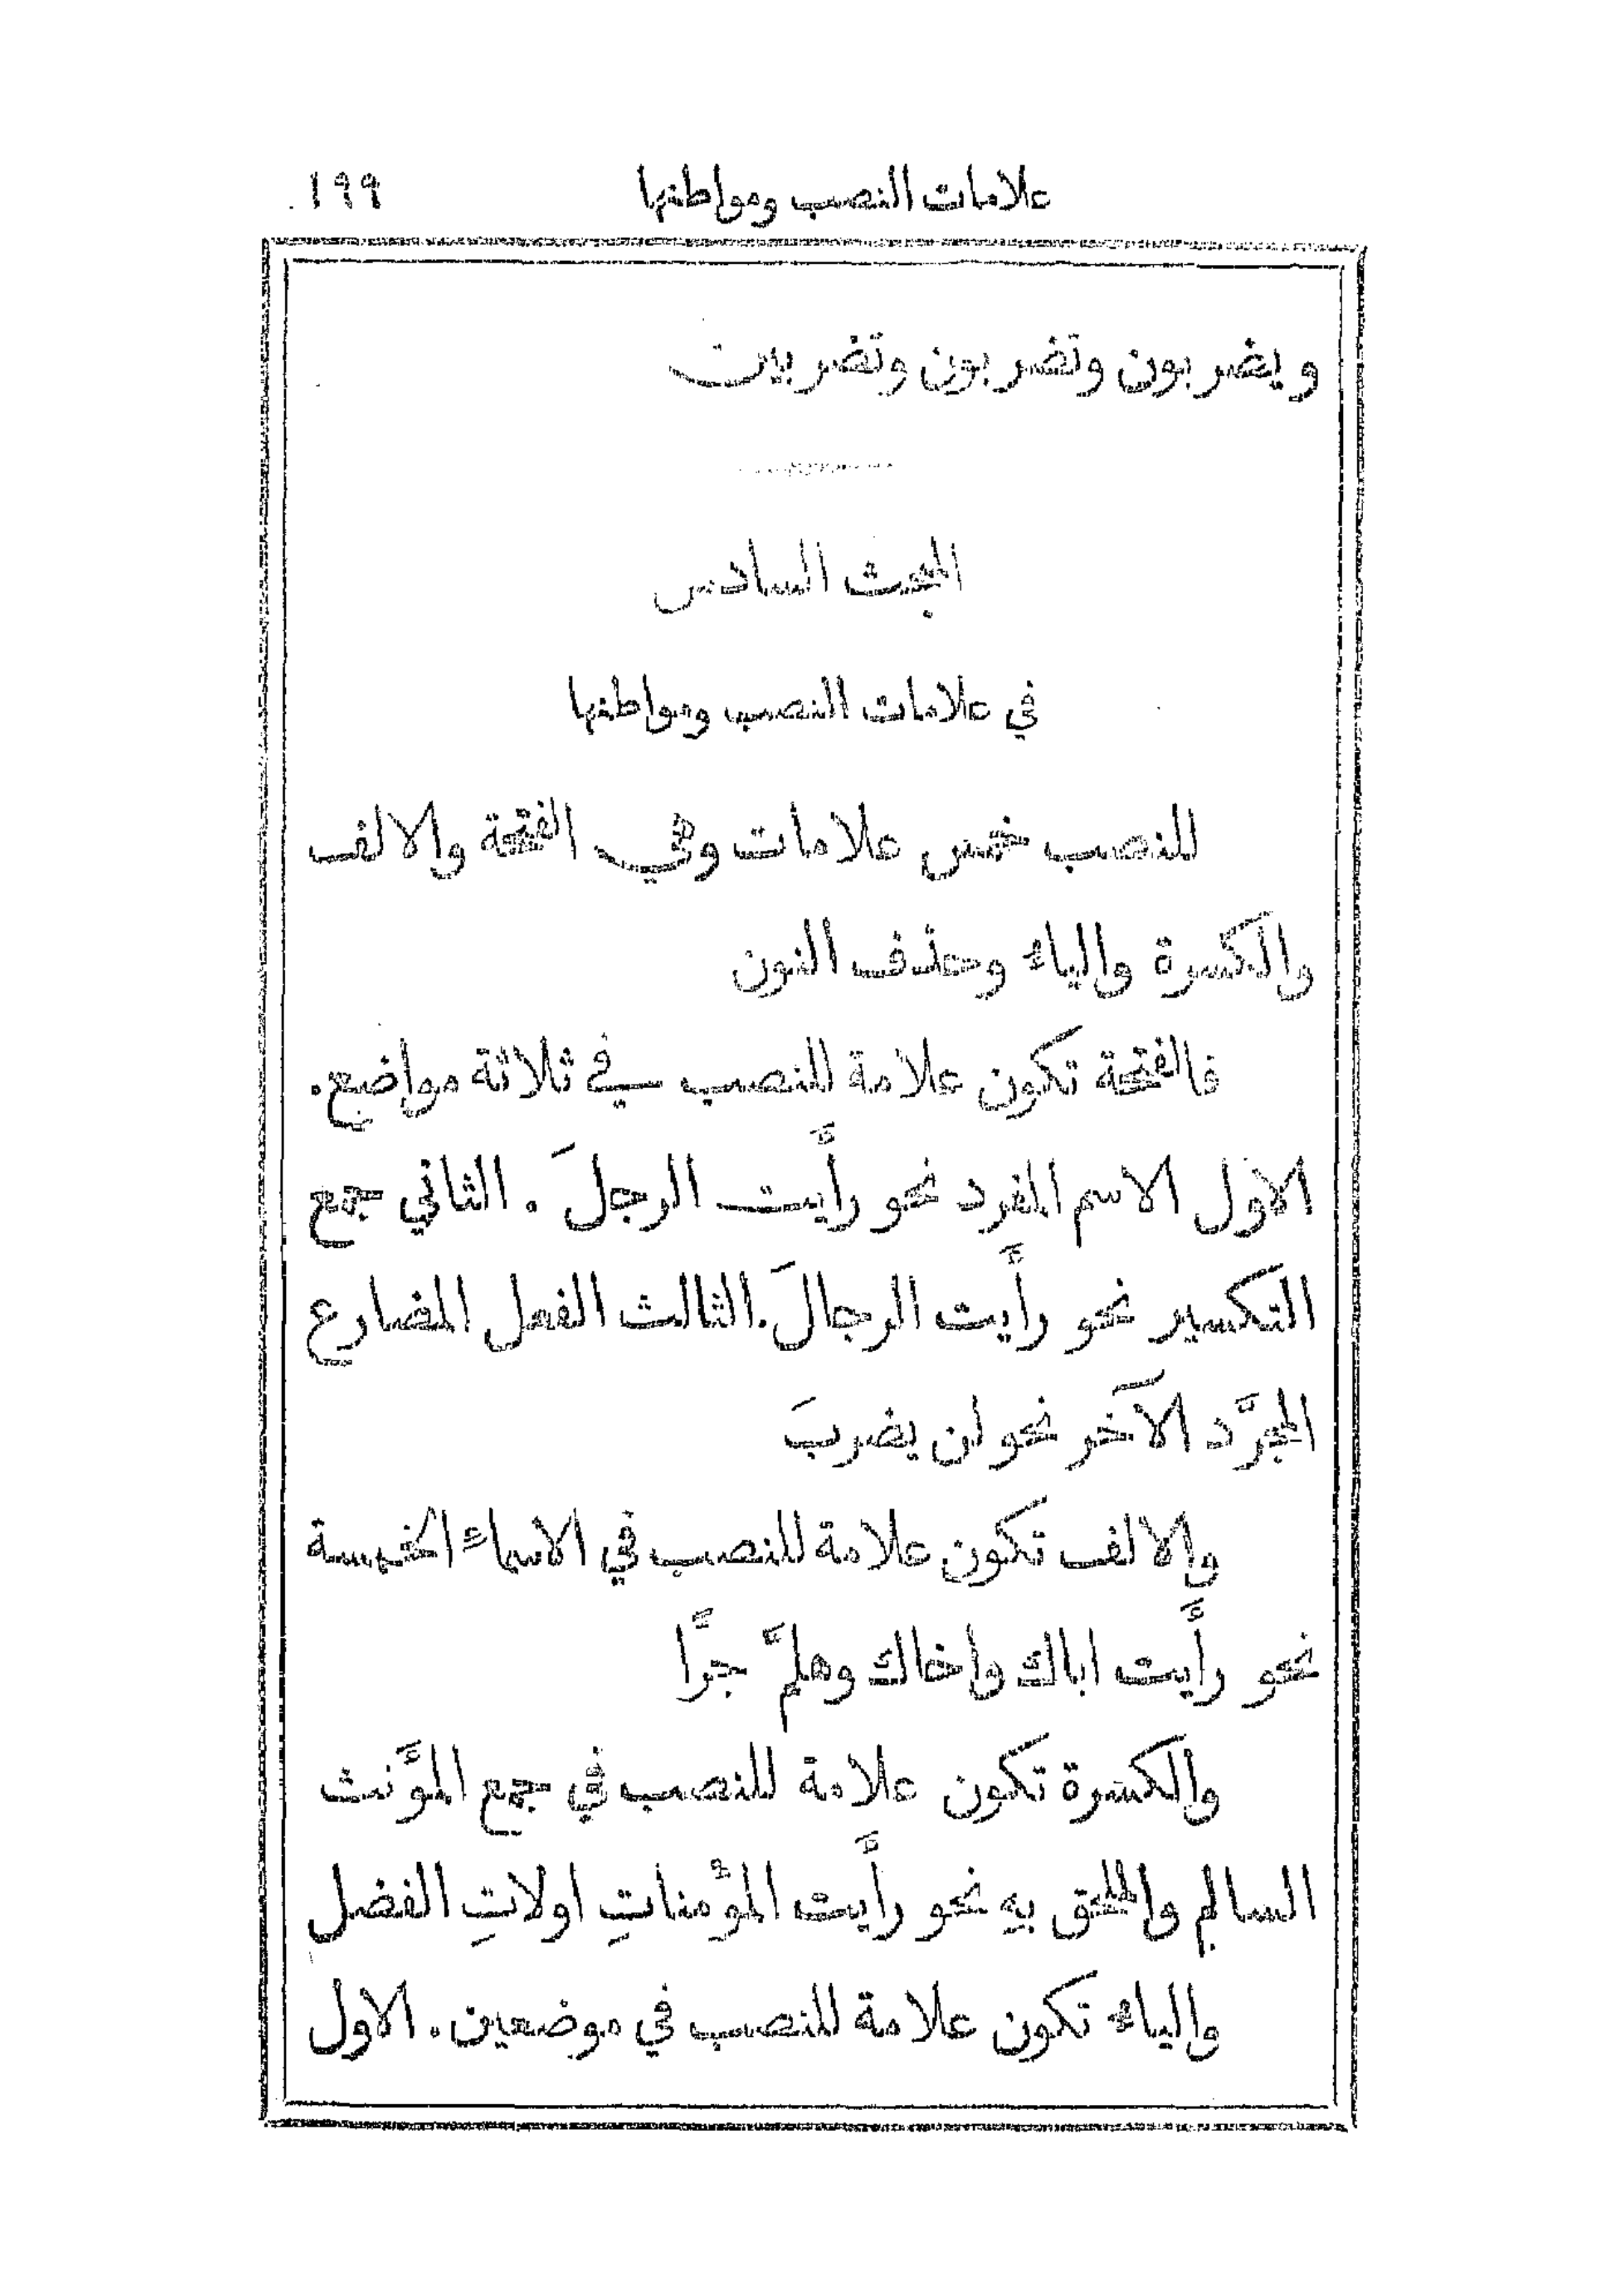 علامات النصب ومواطنها ١٩٩
ويضربون وتضربون وتضربين
المبحث السادس
في علامات النصب ومواطنها
للنصب خمس علامات وهي الفتحة والالف
والكسرة والياء وحذف النون
فالفتحة تكون علامة للنصب في ثلاثة مواضع.
الاول الاسم المفرد نحو رأَيت الرجلَ. الثاني جمع
التكسير نحو رأَيت الرجالَ. الثالث الفعل المضارع
المجرَّد الآخر نحو لن يضربَ
والالف تكون علامة للنصب في الاسماء الخمسة
نحو رأَيت اباك واخاك وهلمَّ جرًّا
والكسرة تكون علامة للنصب في جمع المؤَنث
السالم والملحق به نحو رأَيت المؤْمناتِ اولاتِ الفضل
والياء تكون علامة للنصب في موضعين. الاول